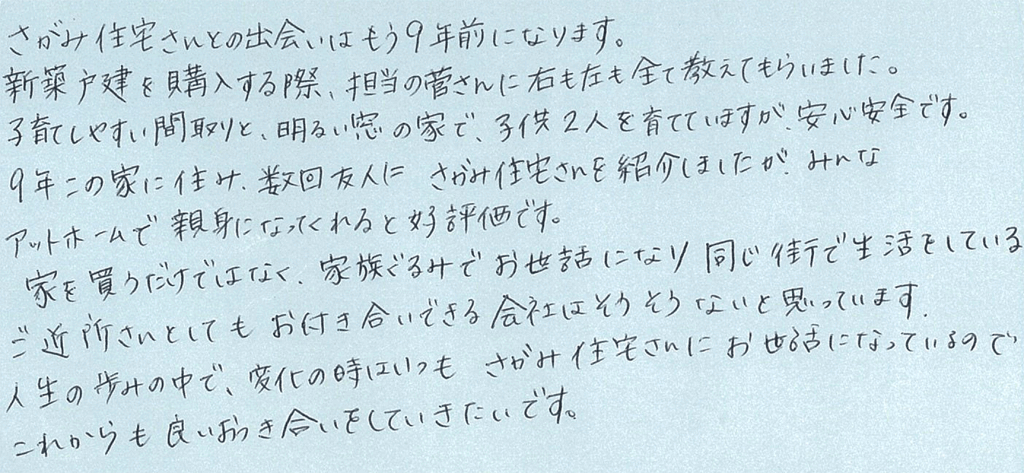 さがみ住宅さんとの出会いはもう9年前になります。
新築戸建を購入する際、担当の菅さんに右も左も全て教えてもらいました。
子育てしやすい間取りと、明るい窓の家で、子供2人を育てていますが、安心安全です。
9年この家に住み、数回友人に さがみ住宅さんを紹介しましたが、みんな
アットホームで親身になってくれると好評価です。
家を買うだけではなく、家族ぐるみでお世話になり 同じ街で生活をしている
ご近所さんとしてもお付き合いできる会社はそうそうないと思っています。
人生の歩みの中で、変化の時はいつも さがみ住宅さんにお世話になっているので
これからも良いおつき合いをしていきたいです。